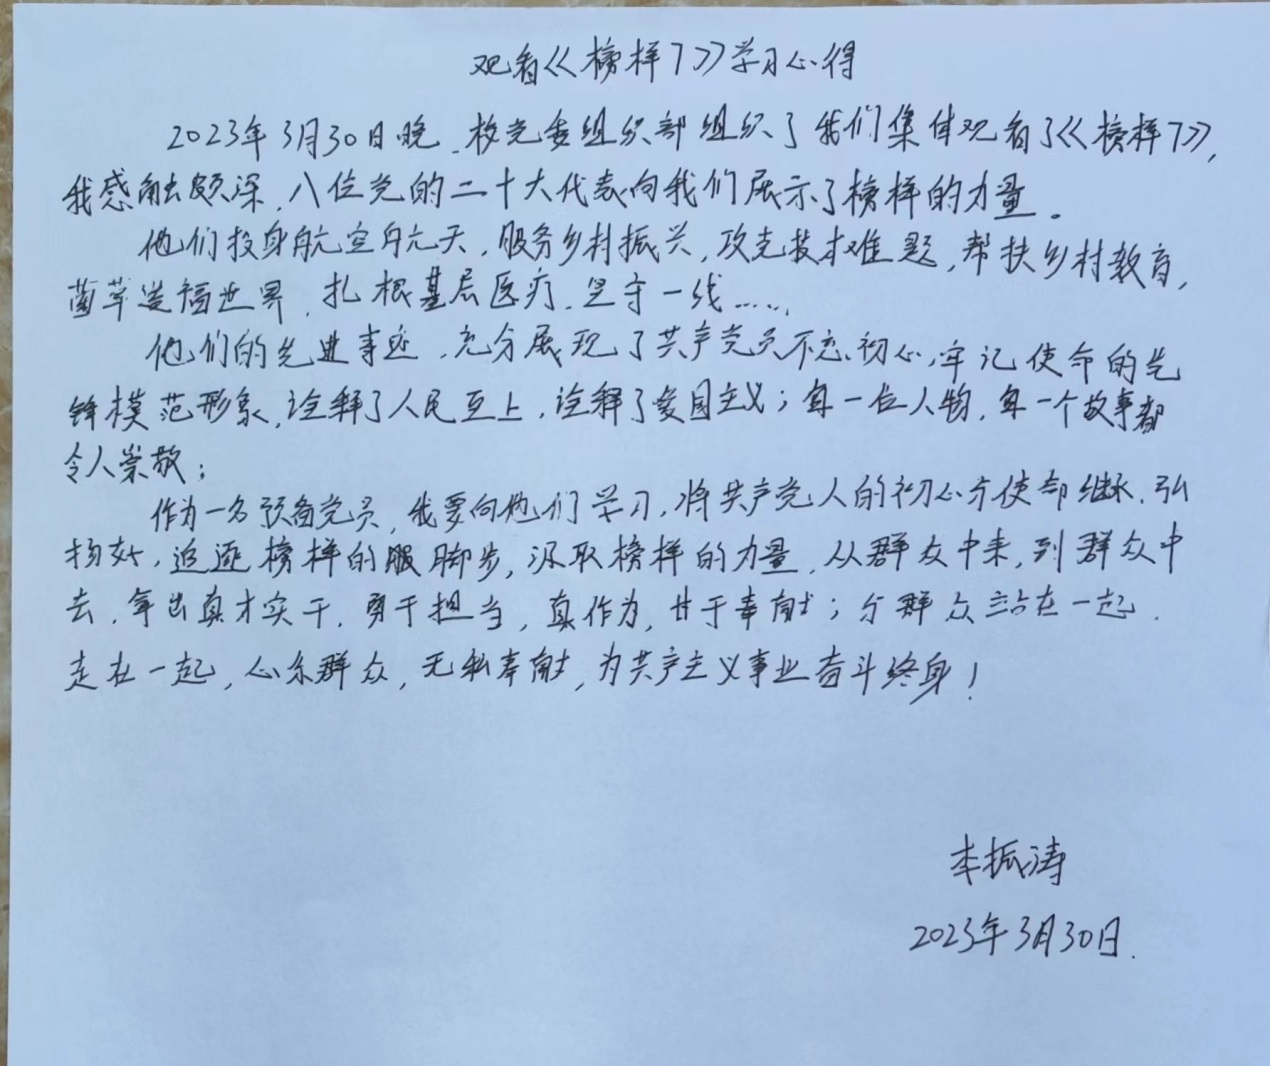 观看《榜样7》学习心得
2023年3月30日晚，校党委组织部组织了我们集体观看了《榜样7》，
我感触颇深，八位党的二十大代表向我们展示了榜样的力量。
他们投身航空航天，服务乡村振兴，攻克技术难题，帮扶乡村教育，
菌草造福世界，扎根基层医疗，坚守一线……，
他们的先进事迹，充分展现了共产党员不忘初心，牢记使命的先
锋模范形象，诠释了人民至上，诠释了爱国主义；每一位人物，每一个故事都
令人崇敬；
作为一名预备党员，我要向他们学习，将共产党人的初心与使命继承、弘
扬好，追逐榜样的脚步，汲取榜样的力量，从群众中来，到群众中
去，拿出真才实干，勇于担当，真作为，甘于奉献；与群众站在一起，
走在一起，心系群众，无私奉献，为共产主义事业奋斗终身！
李振涛
2023年3月30日.